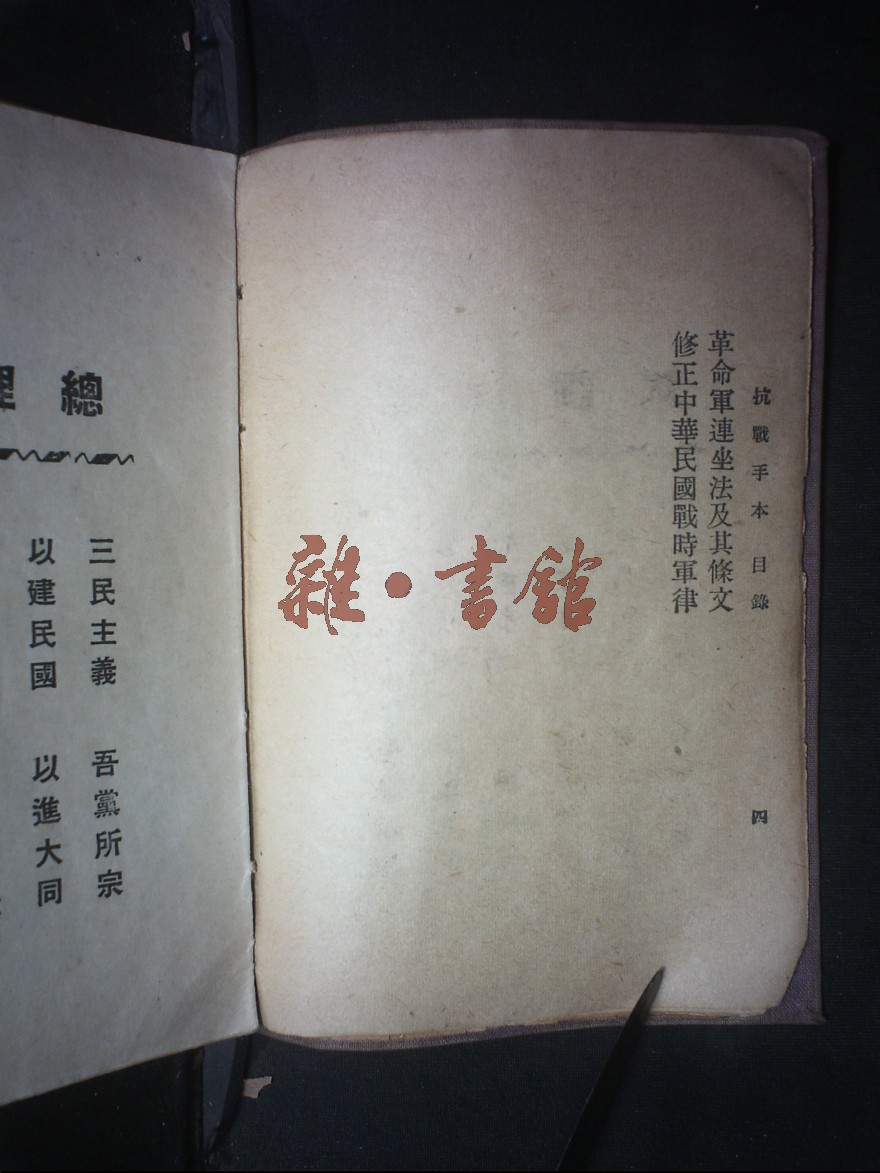 抗戰手本 目錄
四
革命軍連坐法及其條文
修正中華民國戰時軍律
雜·書館
總
三民主義 吾黨所宗
以建民國 以進大同